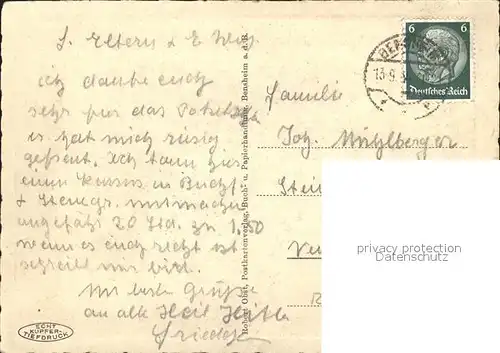 L. Eltern & E. Weis
ich danke euch
sehr für das Paketchen
es hat mich riesig
gefreut. Ich kann hier
einen Kursus in Buchf.
& Stenogr. mitmachen
ungefähr 20 Std. zu 1.50
wenn es euch recht ist
schreibt mir bitte.
Mit besten Grüßen
an alle Heil Hitler
ECHT
KUPFER-
TIEFDRUCK
Robert Obst, Postkartenverlag, Buch- u. Papierhandlung, Bensheim a. d. B.
6 6
Deutsches Reich
13.9.3
Familie
Joh. Mühlberger
privacy protection
Datenschutz